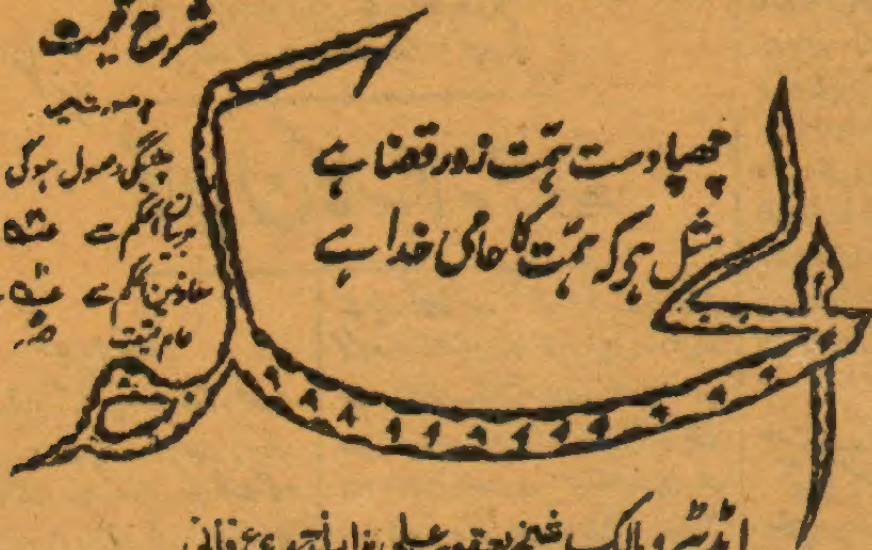 شرح قیمت
بصورت
پیشگی وصول ہوگی
الحکم سے
معاونین الحکم سے
عام قیمت
چھپا دست ہمت زور قضا ہے
مثل ہر کہ ہمت کا حامی خدا ہے
الحکم
ایڈیٹر و مالک شیخ یعقوب علی تراب احمدی عرفانی